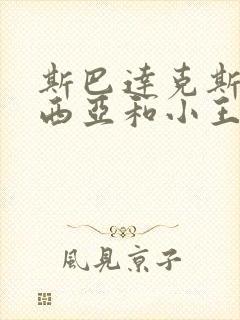 斯巴达克斯
西亚和小王
風見京子